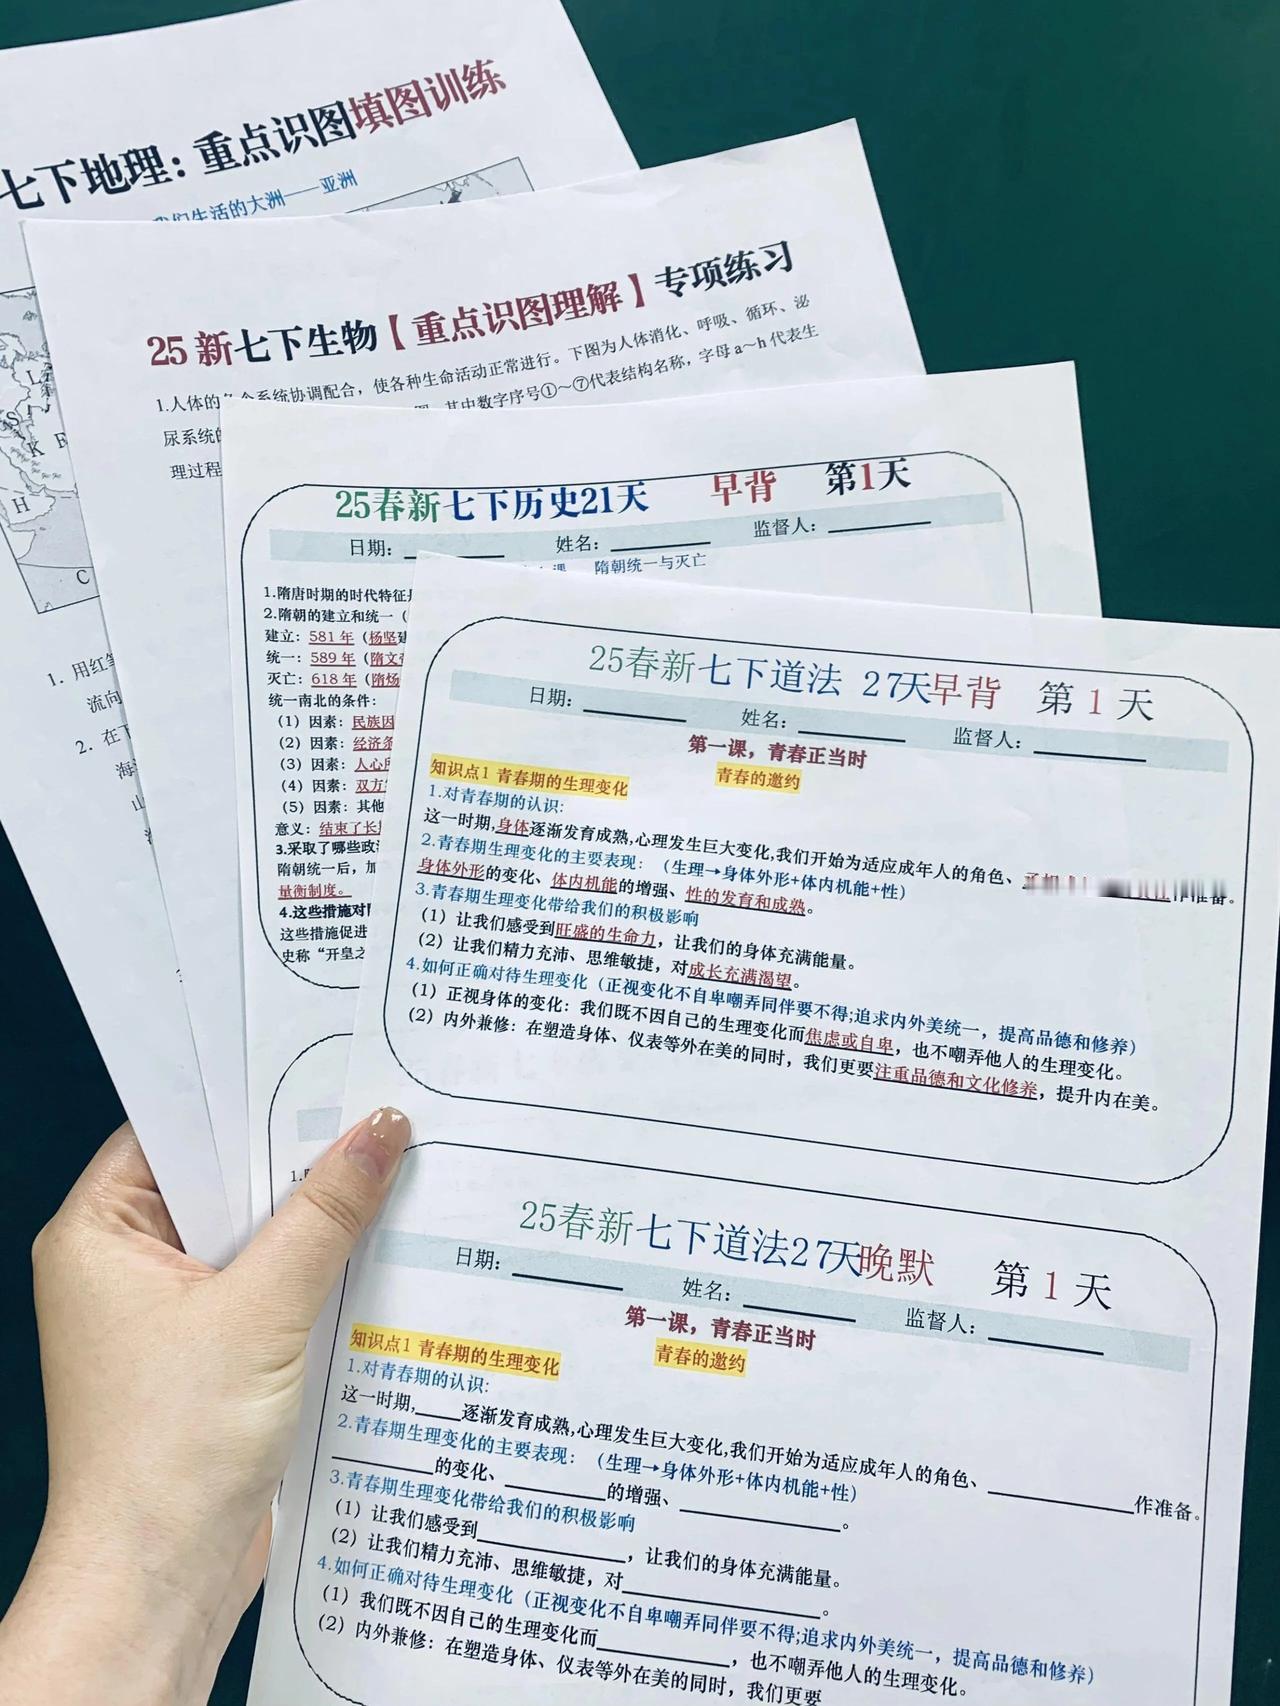 七下地理：重点识图填图训练
我们生活的大洲——亚洲
H
C
1. 用红笔
流向
2. 在下
25新七下生物【重点识图理解】专项练习
1.人体的各个系统协调配合，使各种生命活动正常进行。下图为人体消化、呼吸、循环、泌
尿系统的 图，其中数字序号①～⑦代表结构名称，字母a～h代表生
理过程
25春新七下历史21天 早背 第1天
日期： 姓名： 监督人：
隋朝统一与灭亡
1.隋唐时期的时代特征是
2.隋朝的建立和统一（
建立：581年（杨坚建
统一：589年（隋文帝
灭亡：618年（隋炀
统一南北的条件：
（1）因素：民族因
（2）因素：经济条
（3）因素：人心所
（4）因素：双方实
（5）因素：其他
意义：结束了长期
3.采取了哪些政治
隋朝统一后，加
量衡制度。
4.这些措施对
这些措施促进
史称“开皇之
25春新七下道法 27天早背 第1天
日期： 姓名： 监督人：
第一课，青春正当时
知识点1 青春期的生理变化 青春的邀约
1.对青春期的认识:
这一时期,身体逐渐发育成熟,心理发生巨大变化,我们开始为适应成年人的角色、 作准备。
2.青春期生理变化的主要表现：（生理→身体外形+体内机能+性）
身体外形的变化、体内机能的增强、性的发育和成熟。
3.青春期生理变化带给我们的积极影响
（1）让我们感受到旺盛的生命力，让我们的身体充满能量。
（2）让我们精力充沛、思维敏捷，对成长充满渴望。
4.如何正确对待生理变化（正视变化不自卑嘲弄同伴要不得;追求内外美统一，提高品德和修养）
（1）正视身体的变化：我们既不因自己的生理变化而焦虑或自卑，也不嘲弄他人的生理变化。
（2）内外兼修：在塑造身体、仪表等外在美的同时，我们更要注重品德和文化修养，提升内在美。
25春新七下道法27天晚默 第1天
日期： 姓名： 监督人：
第一课，青春正当时
知识点1 青春期的生理变化 青春的邀约
1.对青春期的认识:
这一时期,____逐渐发育成熟,心理发生巨大变化,我们开始为适应成年人的角色、____作准备。
2.青春期生理变化的主要表现：（生理→身体外形+体内机能+性）
____的变化、____的增强、____。
3.青春期生理变化带给我们的积极影响
（1）让我们感受到____，让我们的身体充满能量。
（2）让我们精力充沛、思维敏捷，对____。
4.如何正确对待生理变化（正视变化不自卑嘲弄同伴要不得;追求内外美统一，提高品德和修养）
（1）我们既不因自己的生理变化而____，也不嘲弄他人的生理变化。
（2）内外兼修：在塑造身体、仪表等外在美的同时，我们更要